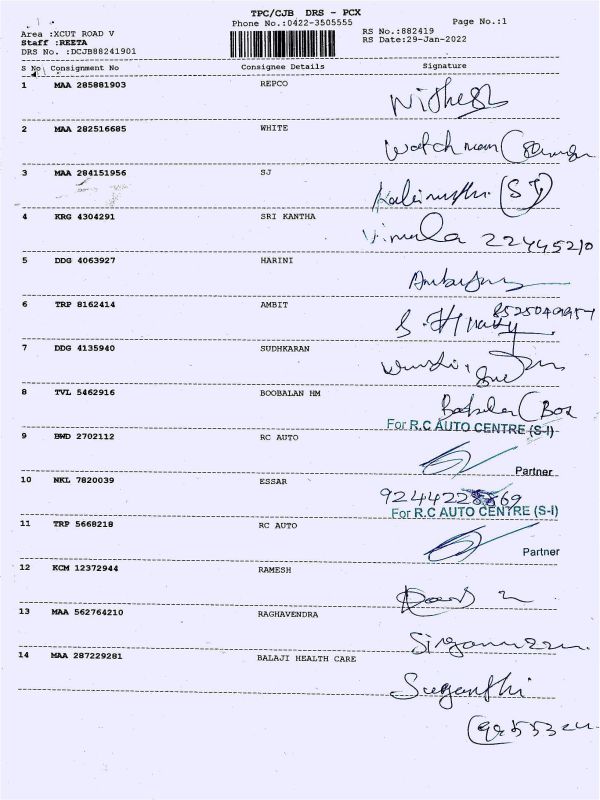 TPC/CJB DRS - PCX
Phone No.:0422-3505555
Page No.:1
Area :XCUT ROAD V
RS No.:882419
Staff :REETA
RS Date:29-Jan-2022
DRS No. :DCJB88241901
S No Consignment No Consignee Details Signature
1 MAA 285881903 REPCO
Nithesh
2 MAA 282516685 WHITE
Watchman
3 MAA 284151956 SJ
(SJ)
4 KRG 4304291 SRI KANTHA
Vimala 22445210
5 DDG 4063927 HARINI
6 TRP 8162414 AMBIT
7 DDG 4135940 SUDHKARAN
8 TVL 5462916 BOOBALAN HM
For R.C AUTO CENTRE (S-I)
9 BWD 2702112 RC AUTO
Partner
10 NKL 7820039 ESSAR
For R.C AUTO CENTRE (S-I)
11 TRP 5668218 RC AUTO
Partner
12 KCM 12372944 RAMESH
13 MAA 562764210 RAGHAVENDRA
14 MAA 287229281 BALAJI HEALTH CARE
Suganthi